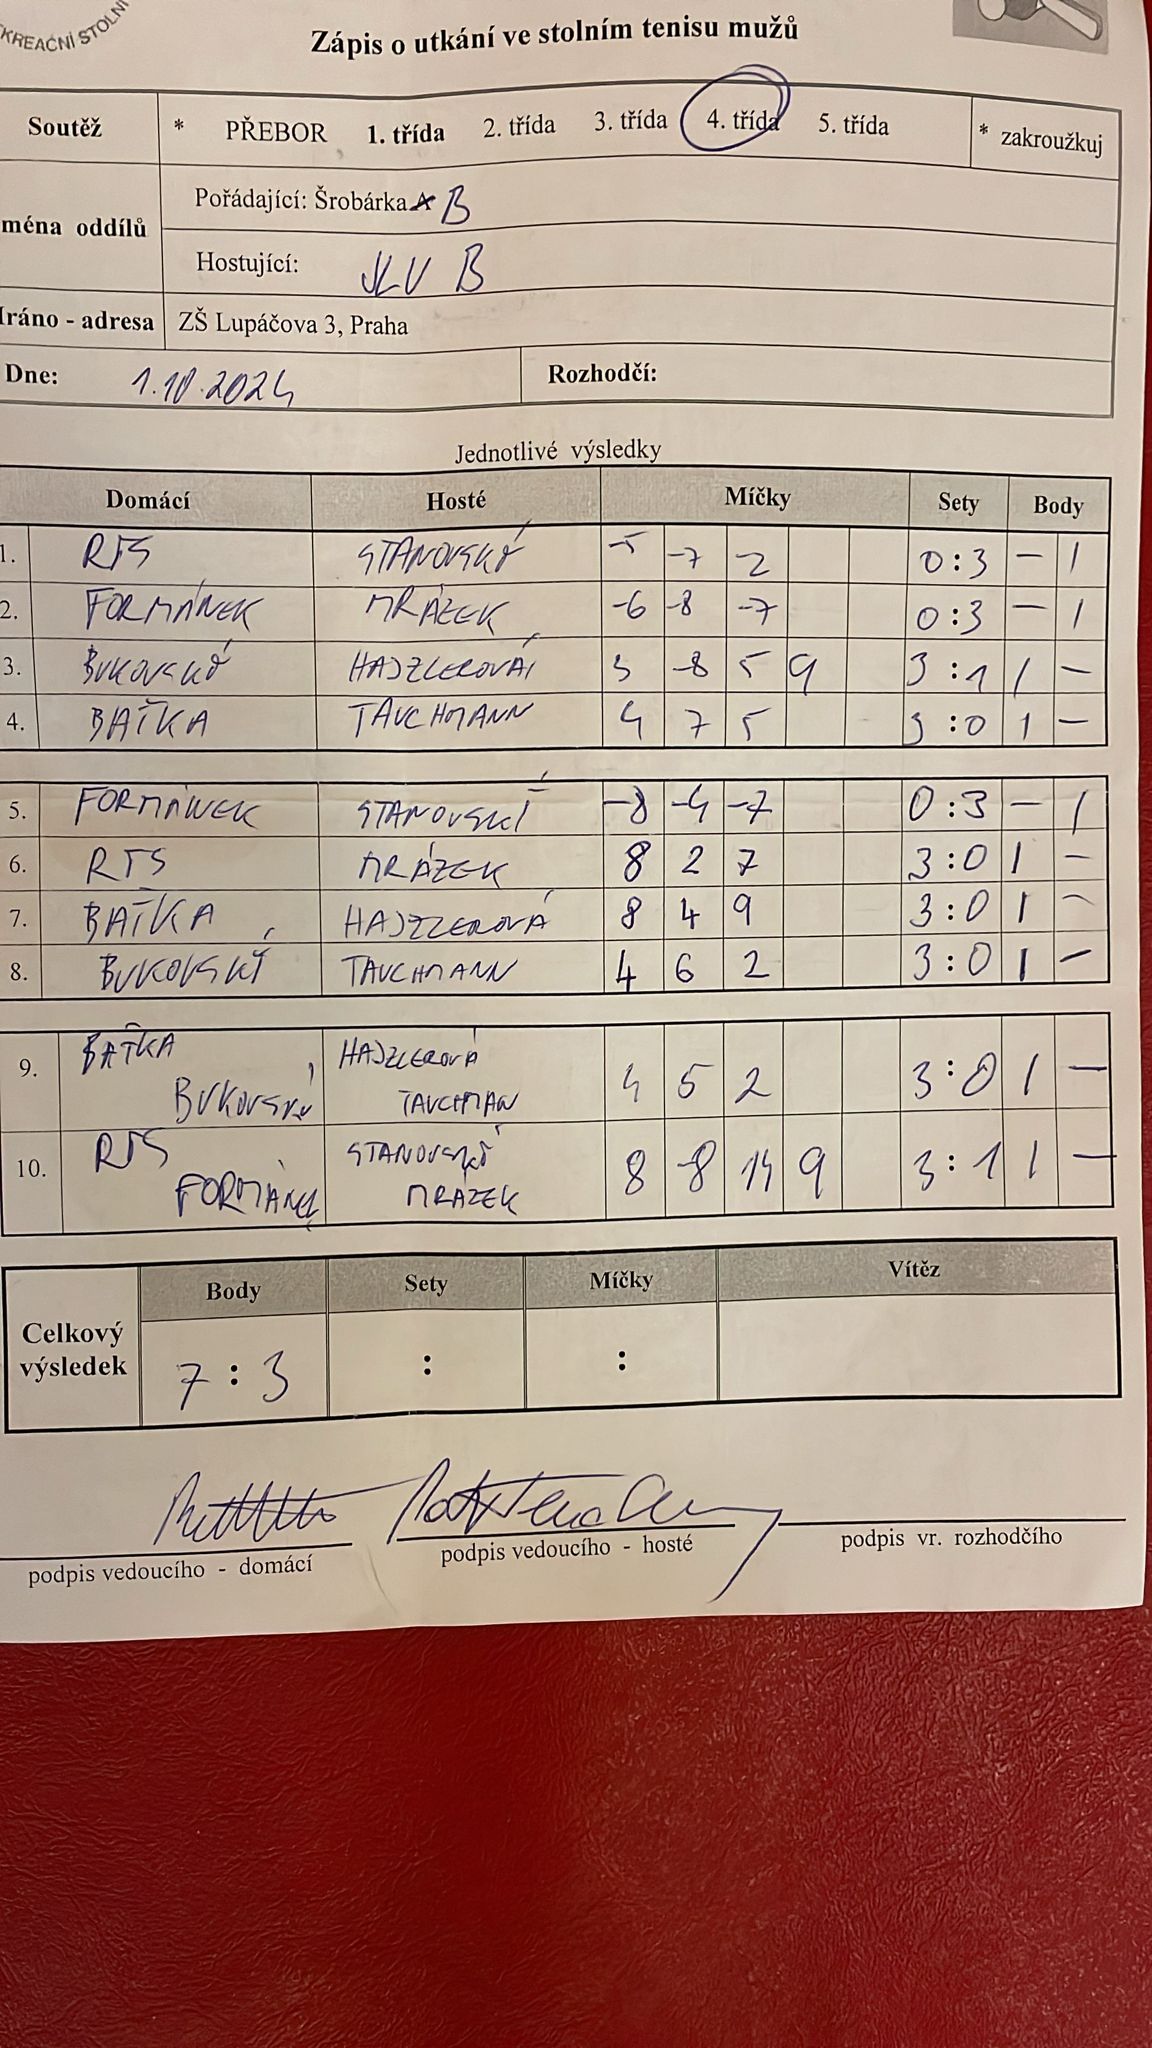 KREAČNÍ STOLNÍ
Zápis o utkání ve stolním tenisu mužů
Soutěž * PŘEBOR 1. třída 2. třída 3. třída 4. třída 5. třída * zakroužkuj
ména oddílů
Pořádající: Šrobárka A B
Hostující: JLV B
Hráno - adresa ZŠ Lupáčova 3, Praha
Dne: 1.10.2024 Rozhodčí:
Jednotlivé výsledky
Domácí Hosté Míčky Sety Body
1. STANOVSKÝ -5 -7 -2 0:3 - 1
2. FORMÁNEK MRÁZEK -6 -8 -7 0:3 - 1
3. BUKOVSKÝ HAJZLEROVÁ 3 -8 5 9 3:1 1 -
4. BAŤKA TAUCHMANN 4 7 5 3:0 1 -
5. FORMÁNEK STANOVSKÝ -8 -4 -7 0:3 - 1
6. MRÁZEK 8 2 7 3:0 1 -
7. BAŤKA HAJZLEROVÁ 8 4 9 3:0 1 -
8. BUKOVSKÝ TAUCHMANN 4 6 2 3:0 1 -
9. BAŤKA HAJZLEROVÁ 4 5 2 3:0 1 -
BUKOVSKÝ TAUCHMAN
10. STANOVSKÝ 8 -8 14 9 3:1 1 -
FORMÁNEK MRÁZEK
Body Sety Míčky Vítěz
Celkový výsledek 7:3 : :
podpis vedoucího - domácí podpis vedoucího - hosté podpis vr. rozhodčího